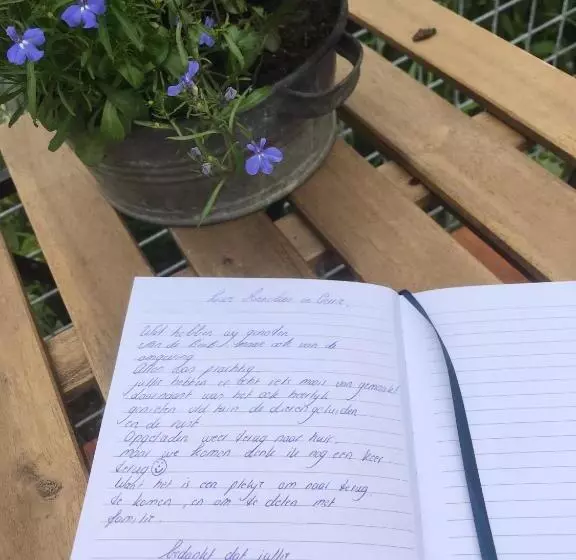 Wat hebben wij genoten
van de boot, maar ook van de
omgeving
Alles was prachtig
jullie hebben er echt iets moois van gemaakt!
daarnaast was het ook heerlijk
genieten vld tuin de dieren geluiden
en de rust
Opgeladen weer terug naar huis.
maar we komen denk ik nog een keer
terug ☺
Want het is een plekje om naar terug
te komen, en om te delen met
familie.
Bedankt dat jullie